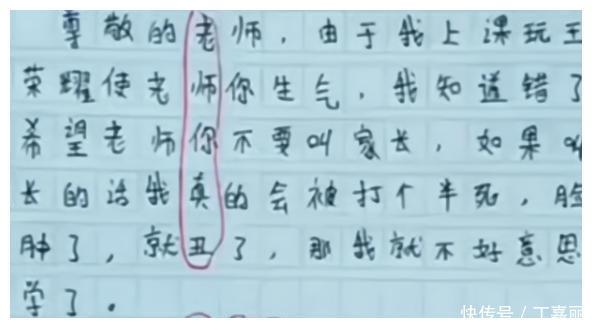 尊敬的老师，由于我上课玩王
荣耀使老师你生气，我知道错了
希望老师你不要叫家长，如果叫
长的话我真的会被打个半死，脸
肿了，就丑了，那我就不好意思
学了。
快传号／丁嘉丽